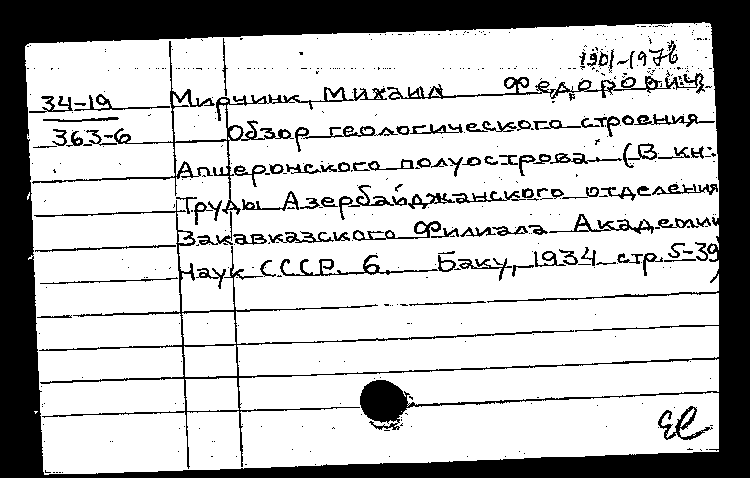 1901-1976
34-19 Мирчинк, Михаил Федорович
363-6 Обзор геологического строения
Апшеронского полуострова. (В кн:
Труды Азербайджанского отделения
Закавказского Филиала Академии
Наук СССР. 6. Баку, 1934 стр. 5-39)